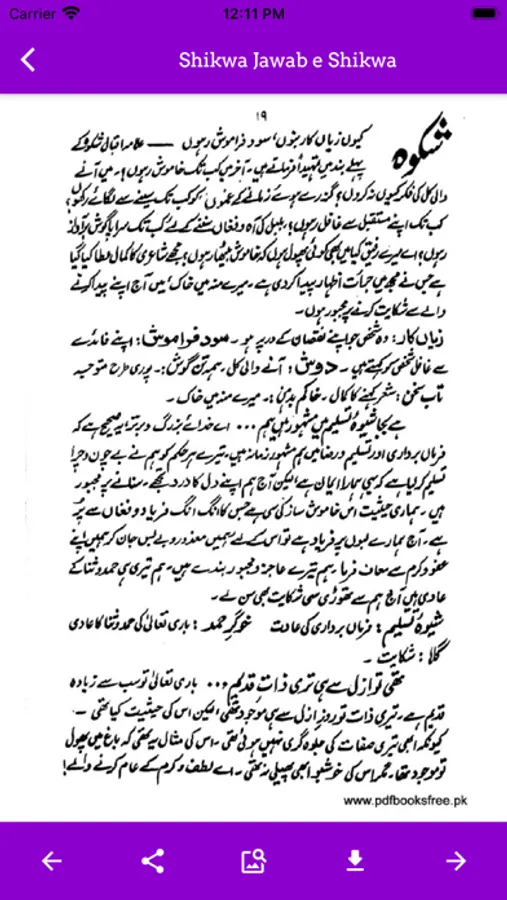 Carrier 12:11 PM
Shikwa Jawab e Shikwa
۱۹
شکوہ
کیوں زیاں کار بنوں، سود فراموش رہوں — علامہ اقبال شکوہ کے
پہلے بند میں تمہیداً فرماتے ہیں۔ آخر میں کب تک خاموش رہوں؟۔ میں آنے
والی کل کی فکر کیوں نہ کروں؟ گذرے ہوئے زمانے کے غموں کو کب تک سینے سے لگائے رکھوں؟
کب تک اپنے مستقبل سے غافل رہوں؟۔ بلبل کی آہ و فغاں سننے کے لئے کب تک سراپا گوش بر آواز
رہوں؟ اے میرے رفیق کیا میں بھی کوئی پھول ہوں کہ خاموش بیٹھا رہوں؟ مجھے شاعری کا کمال عطا کیا گیا
ہے جس نے مجھ میں جرأت اظہار پیدا کر دی ہے۔ میرے منہ میں خاک، میں آج اپنے پیدا کرنے
والے سے شکایت کرنے پر مجبور ہوں۔
زیاں کار: وہ شخص جو اپنے نقصان کے درپے ہو۔ سود فراموش: اپنے فائدے
سے غافل شخص کو کہتے ہیں۔ دوش: آنے والی کل۔ ہمہ تن گوش:۔ پوری طرح متوجہ
تاب سخن: شعر کہنے کا کمال۔ خاکم بدہن:۔ میرے منہ میں خاک۔
ہے بجا شیوۂ تسلیم میں مشہور ہیں ہم ... اے خدائے بزرگ و برتر! یہ صحیح ہے کہ
فرماں برداری اور تسلیم و رضا میں ہم مشہور زمانہ ہیں۔ تیرے ہر حکم کو ہم نے بے چون و چرا
تسلیم کر لیا ہے کہ یہی ہمارا ایمان ہے لیکن آج ہم اپنے دل کا درد تجھے۔ سنانے پر مجبور
ہیں۔ ہماری حیثیت اس خاموش ساز کی سی ہے جس کا انگ انگ فریاد و فغاں سے پُر
ہے۔ آج ہمارے لبوں پر فریاد ہے تو اس کے لیے ہمیں معذور و بے بس جان کر ہمیں اپنے
عفو و کرم سے معاف فرما۔ ہم تیرے عاجز و مجبور بندے ہیں۔ ہم تیری ہی حمد و ثنا کے
عادی ہیں آج ہم سے تھوڑی سی شکایت بھی سن لے۔
شیوۂ تسلیم: فرماں برداری کی عادت خوگر حمد: باری تعالیٰ کی حمد و ثنا کا عادی
گلا: شکایت۔
تھی تو ازل سے ہی تری ذات قدیم ... باری تعالیٰ تو سب سے زیادہ
قدیم ہے۔ تیری ذات تو روز ازل سے ہی موجود تھی لیکن اس کی حیثیت کیا تھی۔
کیونکہ ابھی تیری صفات کی جلوہ گری نہیں ہوئی تھی۔ اس کی مثال یہ تھی کہ باغ میں پھول
تو موجود تھا۔ مگر اس کی خوشبو ابھی پھیلی نہ تھی۔ اے لطف و کرم کے عام کرنے والے!
www.pdfbooksfree.pk